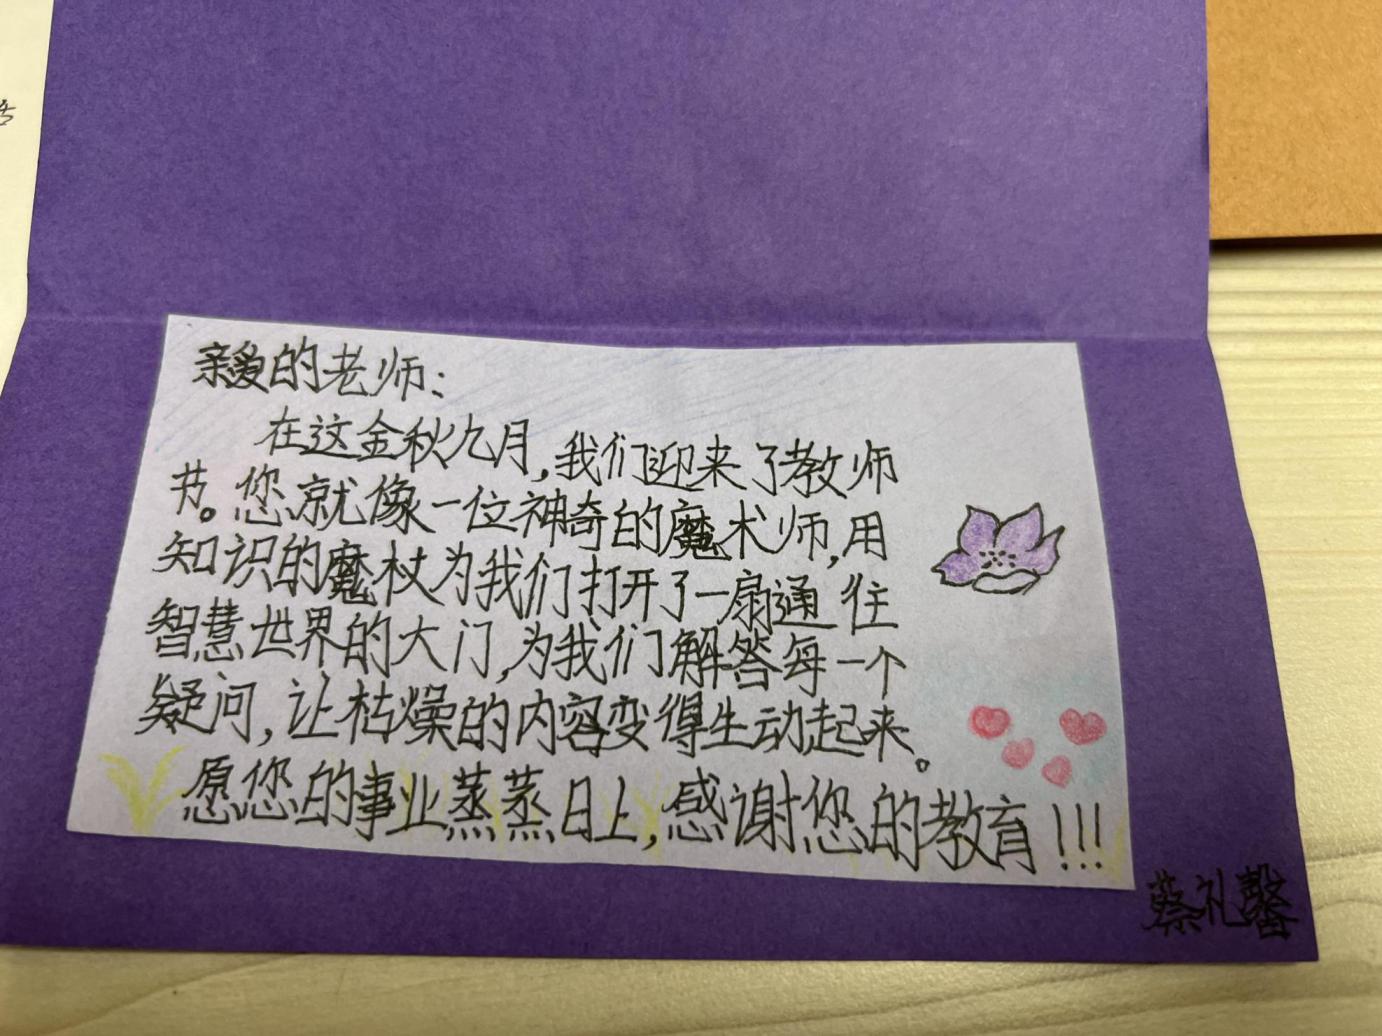 亲爱的老师：
在这金秋九月，我们迎来了教师
节。您就像一位神奇的魔术师，用
知识的魔杖为我们打开了一扇通往
智慧世界的大门，为我们解答每一个
疑问，让枯燥的内容变得生动起来。
愿您的事业蒸蒸日上，感谢您的教育！！！
蔡礼馨